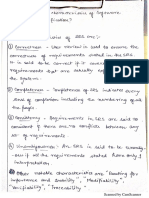 characteristics of SRS are:-
① Correctness :- User review is said to ensure the
correctness of requirements stated in the
SRS. SRS is said to be correct if it covers all
requirements that are actually expected from
the system.
② Completeness :- Completeness of SRS indicates every
sense of completion including the numbering of all
the pages
③ Consistency :- Requirements in SRS are said to be
consistent if there are no conflicts between any
set of requirements.
④ Unambiguousness :- An SRS is said to be unambiguous
if all the requirements stated have only 1
interpretation.
Other notable characteristics are, "Ranking for
importance and stability", "Modifiability",
"Verifiability", "Traceability".
Scanned by CamScanner